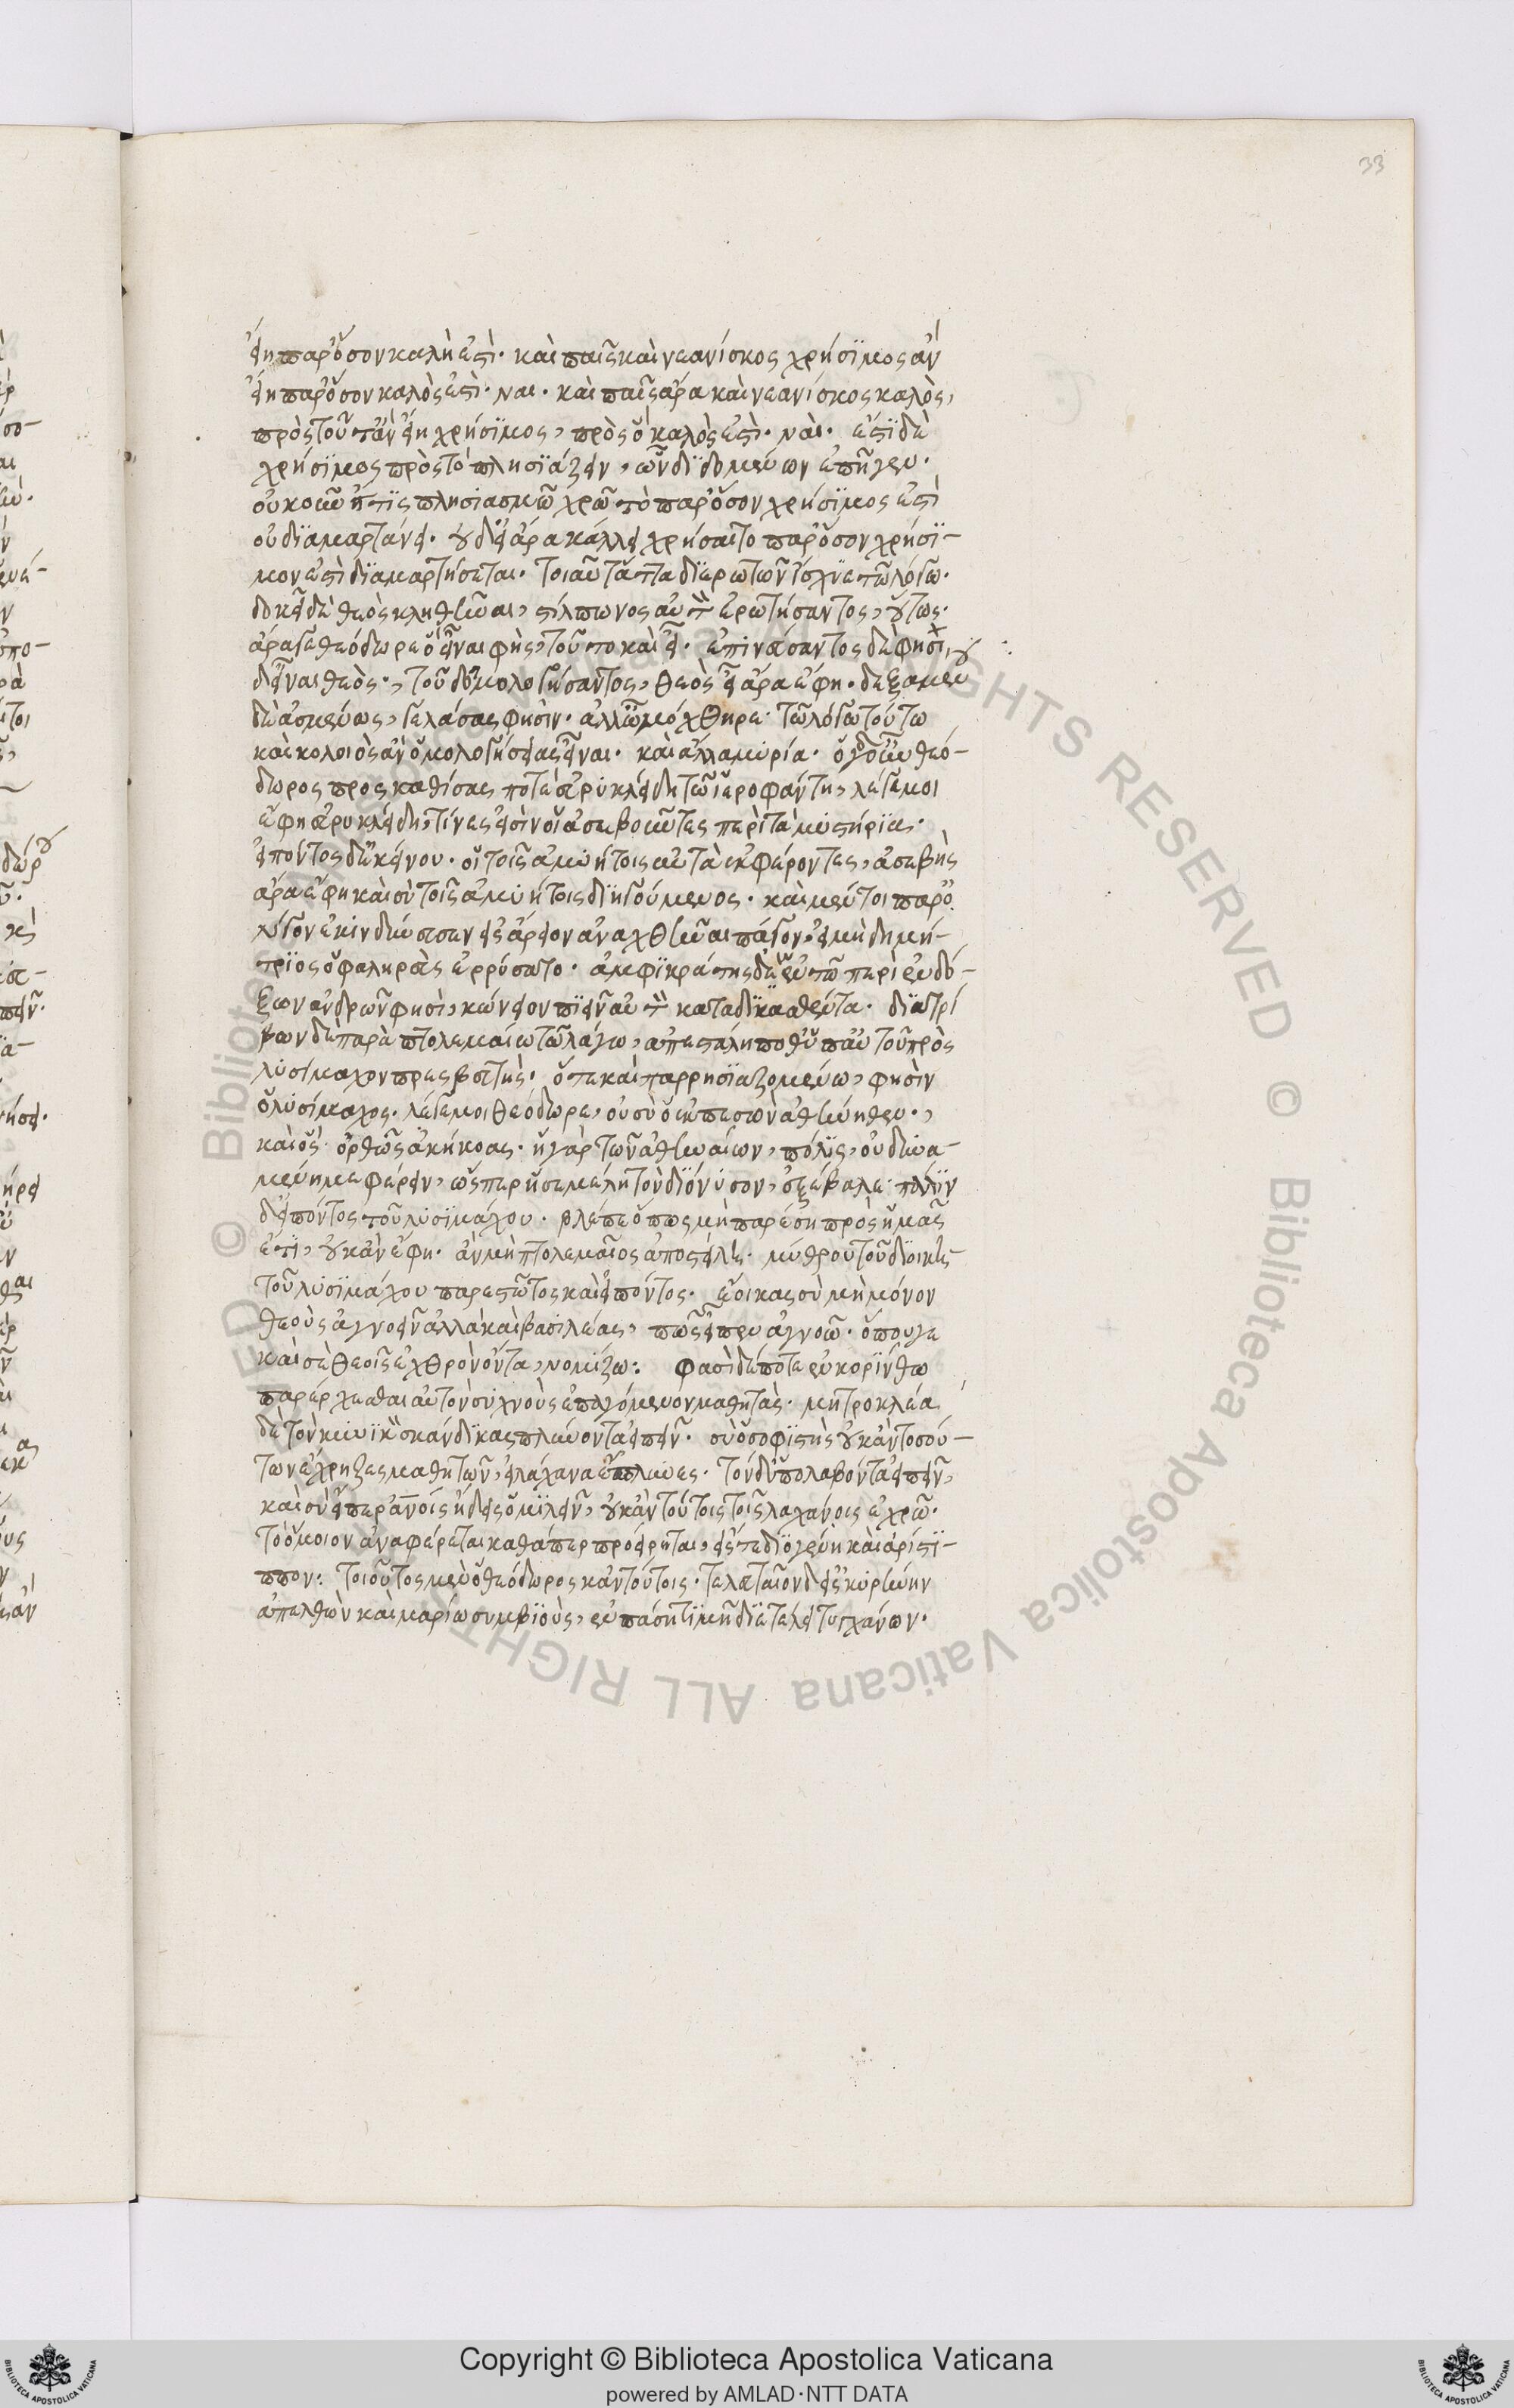 33
εἴη παρ' ὅσον καλή ἐστι. καὶ παῖς καὶ νεανίσκος χρήσιμος ἂν
εἴη παρ' ὅσον καλός ἐστι. ναί. καὶ παῖς ἄρα καὶ νεανίσκος καλὸς,
πρὸς τοῦτ' ἂν εἴη χρήσιμος, πρὸς ὃ καλός ἐστι. ναί. ἔστι δὲ
χρήσιμος πρὸς τὸ πλησιάζειν, ὧν διδομένων ἐπῆγεν.
οὐκοῦν εἴ τις πλησιασμῷ χρῷτο παρ' ὅσον χρήσιμός ἐστι
οὐ διαμαρτάνει. οὐδ' εἰ ἄρα κάλλει χρήσαιτο παρ' ὅσον χρήσι-
μόν ἐστι διαμαρτήσεται. τοιαῦτα ἄττα διερωτῶν ἴσχυε τῷ λόγῳ.
δοκεῖ δὲ θεὸς κληθῆναι, στίλπωνος αὐτὸν ἐρωτήσαντος, οὕτως.
ἆρά γε θεόδωρε ὃ εἶναι φῂς, τοῦτο καὶ εἶ. ἐπινεύσαντος δέ φησι, οὐ
δ' εἶναι θεὸς., τοῦ δ' ὁμολογήσαντος, θεὸς εἶ ἄρα ἔφη. δεξαμένου
δὲ ἀσμένως, γελάσας φησὶν. ἀλλ' ὦ μόχθηρε τῷ λόγῳ τούτῳ
καὶ κολοιὸς ἂν ὁμολογήσειας εἶναι. καὶ ἄλλα μυρία. ὁ γοῦν θεό-
δωρος προσκαθίσας ποτὲ εὐρυκλείδῃ τῷ ἱεροφάντῃ, λέγε μοι
ἔφη εὐρυκλείδη, τίνες εἰσὶν οἱ ἀσεβοῦντες περὶ τὰ μυστήρια.
εἰπόντος δ' ἐκείνου. οἱ τοῖς ἀμυήτοις αὐτὰ ἐκφέροντες, ἀσεβὴς
ἄρα ἔφη καὶ σὺ τοῖς ἀμυήτοις διηγούμενος. καὶ μέντοι παρ' ὀ
λίγον ἐκινδύνευσεν εἰς ἄρειον ἀναχθῆναι πάγον, εἰ μὴ δημή-
τριος ὁ φαληρεὺς ἐρρύσατο. ἀμφικράτης δ' ἐν τῷ περὶ ἐνδό-
ξων ἀνδρῶν φησὶ, κώνειον πιεῖν αὐτὸν καταδικασθέντα. διατρί
βων δὲ παρὰ πτολεμαίῳ τῷ λάγου, ἀπεστάλη ποθ' ὑπ' αὐτοῦ πρὸς
λυσίμαχον πρεσβευτής. ὅτε καὶ παρρησιαζομένῳ, φησὶν
ὁ λυσίμαχος. λέγε μοι θεόδωρε, οὐ σὺ ὁ ἐκπεσὼν ἀθήνηθεν.,
καὶ ὃς. ὀρθῶς ἀκήκοας. ἡ γὰρ τῶν ἀθηναίων, πόλις, οὐ δυνα-
μένη με φέρειν, ὥσπερ ἡ σεμέλη τὸν διόνυσον, ἐξέβαλε. πάλιν
δ' εἰπόντος τοῦ λυσιμάχου. βλέπε ὅπως μὴ παρέσῃ πρὸς ἡμᾶς
ἔτι, οὐκ ἂν ἔφη. ἂν μὴ πτολεμαῖος ἀποστείλῃ. μύθρου τοῦ διοικητοῦ
τοῦ λυσιμάχου παρεστῶτος καὶ εἰπόντος. ἔοικας σὺ μὴ μόνον
θεοὺς ἀγνοεῖν ἀλλὰ καὶ βασιλέας, πῶς εἶπεν ἀγνοῶ. ὅπου γε
καὶ σὲ θεοῖς ἐχθρὸν ὄντα, νομίζω: φασὶ δέ ποτε ἐν κορίνθῳ
παρέρχεσθαι αὐτὸν συχνοὺς ἐπαγόμενον μαθητάς. μητροκλέα
δὲ τὸν κυνικὸν σκάνδικας πλύνοντα εἰπεῖν. σὺ ὁ σοφιστὴς οὐκ ἂν τοσού-
των ἔχρηζες μαθητῶν, εἰ λάχανα ἔπλυνες. τὸν δ' ὑπολαβόντα εἰπεῖν,
καὶ σὺ εἴπερ ἀνοις ᾔδεις ὁμιλεῖν, οὐκ ἂν τούτοις τοῖς λαχάνοις ἐχρῶ.
τὸ ὅμοιον ἀναφέρεται καθάπερ προείρηται, εἴς τε διογένη καὶ ἀρίστι-
ππον: τοιοῦτος μὲν ὁ θεόδωρος κἀν τούτοις. τελευταῖον δ' εἰς κυρήνην
ἀπελθὼν καὶ μαρίῳ συμβιοὺς, ἐν πάσῃ τιμῇ διετέλει τυγχάνων.
Copyright © Biblioteca Apostolica Vaticana
powered by AMLAD·NTT DATA